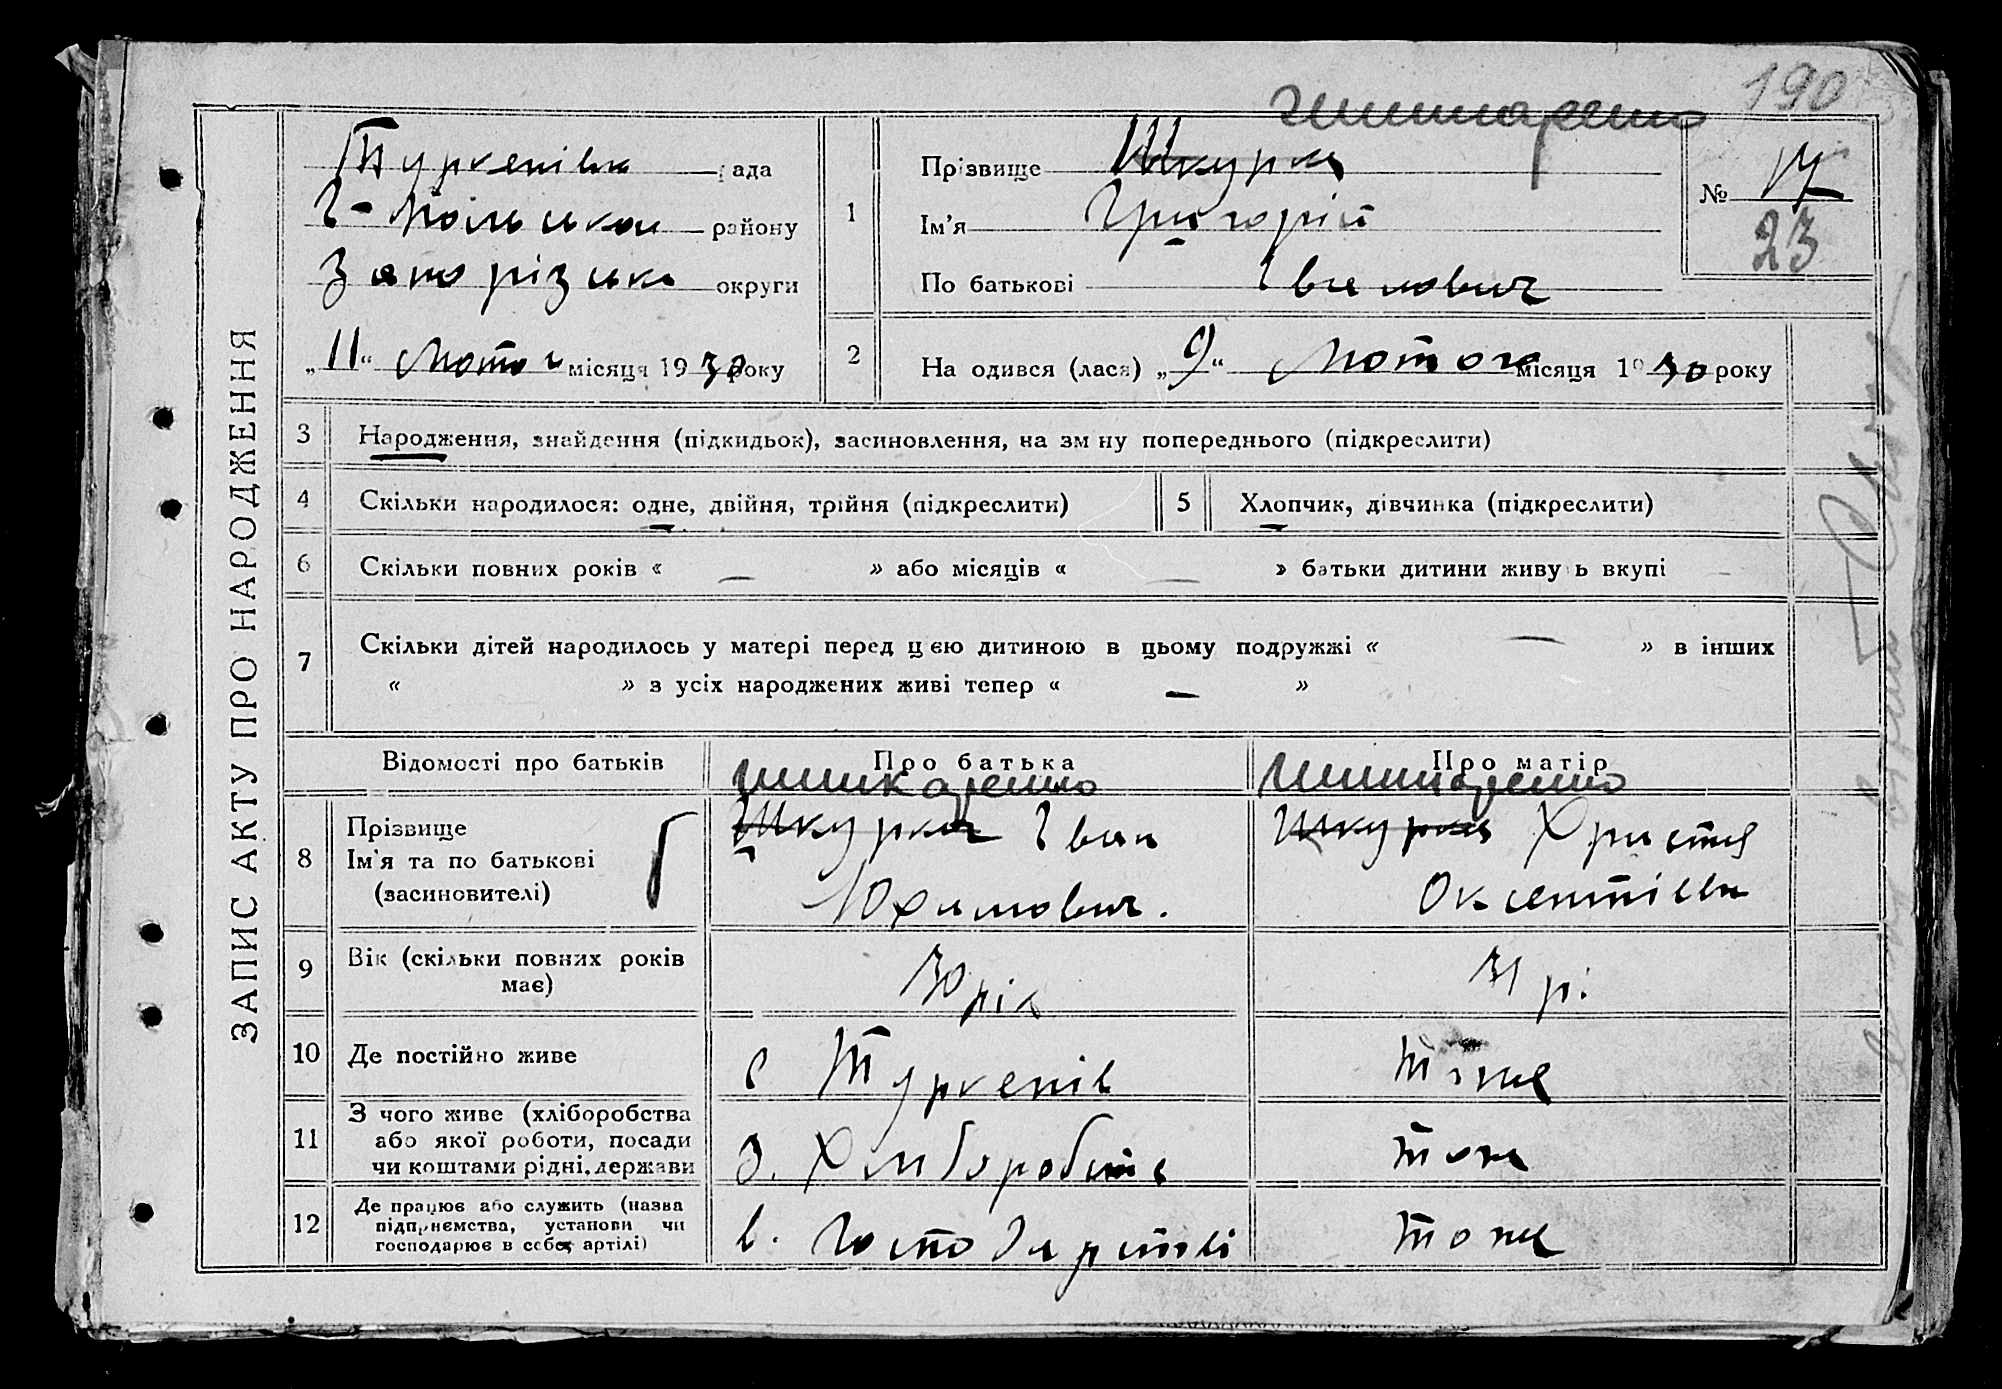 190
Туркенівка рада
Г-Польськ району
Запорізька округи
„11“ лютого місяця 1930 року
ЗАПИС АКТУ ПРО НАРОДЖЕННЯ
1
Прізвище Шкурка
Ім'я Григорій
По батькові Іванович
№ 17
23
2 Народився (лася) „9“ лютого місяця 1930 року
3 Народження, знайдення (підкидьок), засиновлення, на зміну попереднього (підкреслити)
4 Скільки народилося: одне, двійня, трійня (підкреслити) 5 Хлопчик, дівчинка (підкреслити)
6 Скільки повних років « — » або місяців « — » батьки дитини живуть вкупі
7 Скільки дітей народилось у матері перед цією дитиною в цьому подружжі « — » в інших
« » з усіх народжених живі тепер « — »
Відомості про батьків Про батька Про матір
Шишкаренко
8 Прізвище
Ім'я та по батькові
(засиновителі)
Шкурка Іван
Юхимович.
Шкурка Христя
Оксентіевн
9 Вік (скільки повних років
має)
30 рік
31 р.
10 Де постійно живе с Туркенів тоже
11 З чого живе (хліборобства
або якої роботи, посади
чи коштами рідні, держави
З. Хліборобств
тоже
12 Де працює або служить (назва
підприємства, установи чи
господарює в себе, артілі)
в. Господарстві
тоже